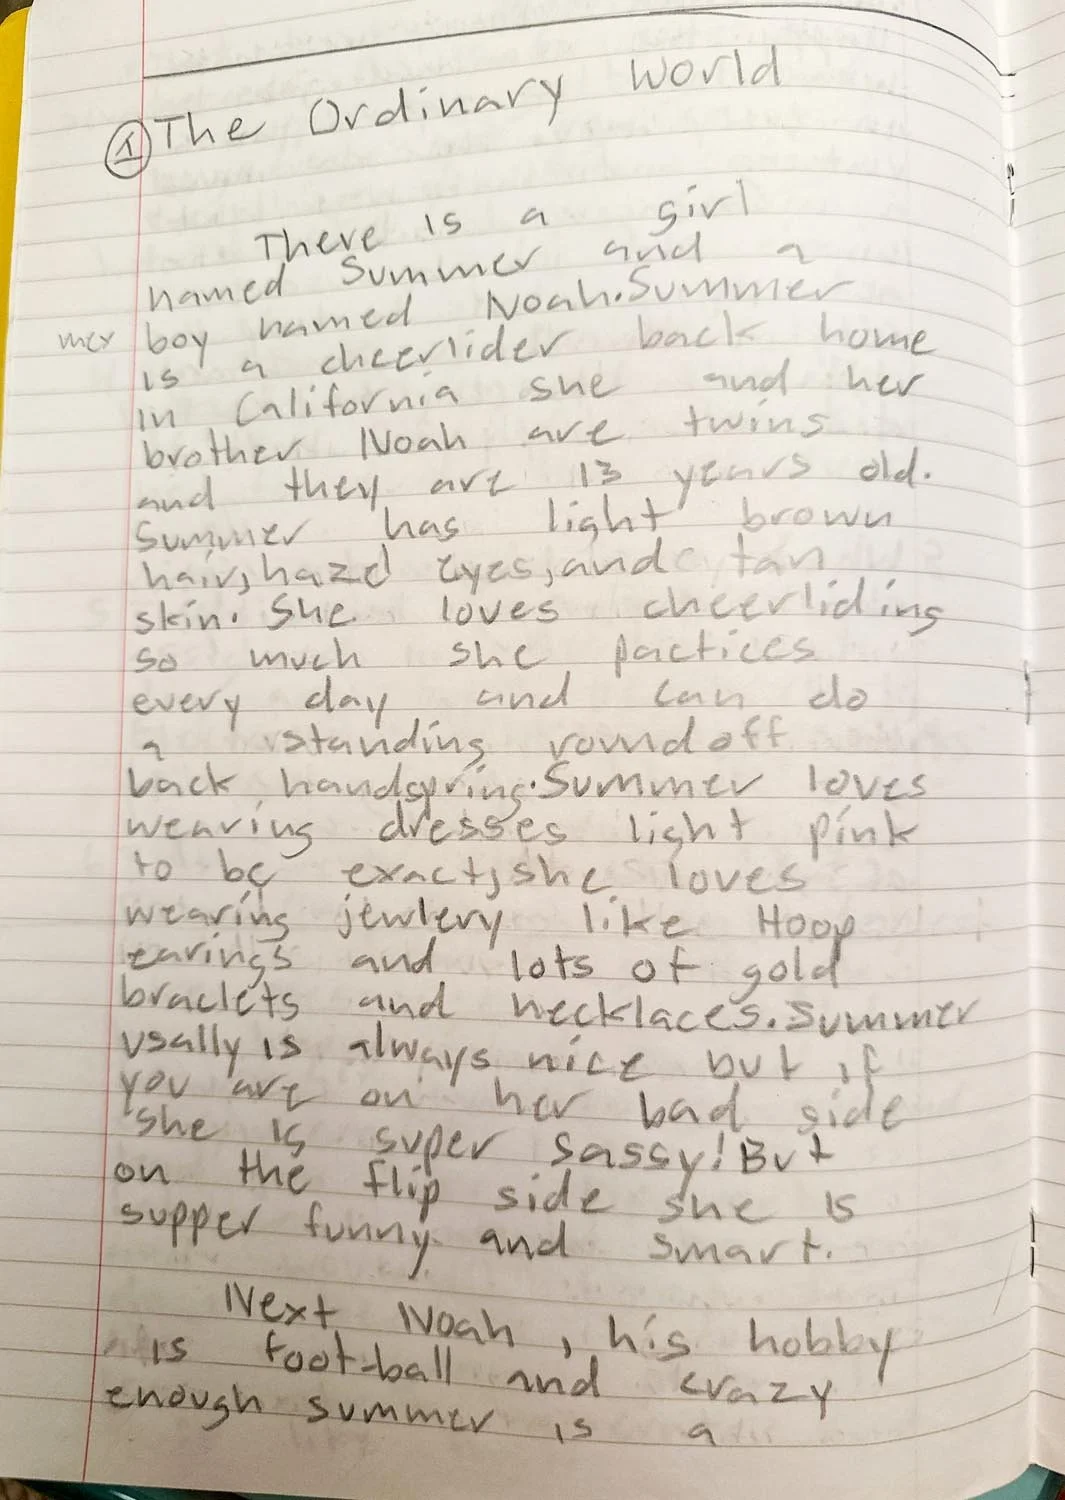 ① The Ordinary World
There is a girl
named Summer and a
boy named Noah. Summer
is a cheerlider back home
in California she and her
brother Noah are twins
and they are 13 years old.
Summer has light brown
hair, hazel eyes, and tan
skin. She loves cheerliding
so much she pactices
every day and can do
a standing roundoff
back handspring. Summer loves
wearing dresses light pink
to be exact, she loves
wearing jewlery like Hoop
earings and lots of gold
braclets and necklaces. Summer
usally is always nice but if
you are on her bad side
she is super sassy! But
on the flip side she is
supper funny and smart.
Next Noah, his hobby
is foot-ball and crazy
enough summer is a